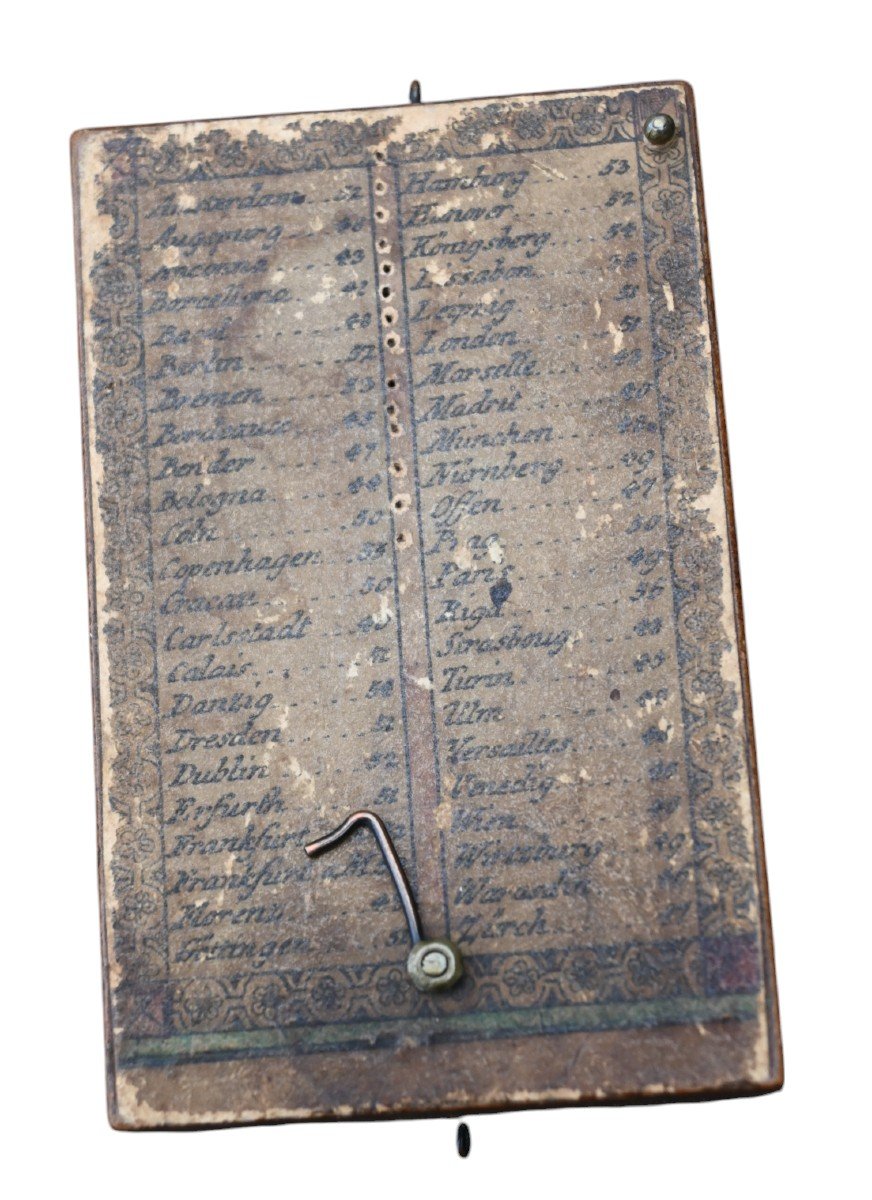 Amsterdam 52
Augspurg 48
Anconna 43
Barcellona
Basel
Berlin 52
Bremen 53
Bordeaux 45
Bender 47
Bologna 44
Cöln 50
Copenhagen 55
Cracau 50
Carlsstadt
Calais 51
Dantzig 54
Dresden 51
Dublin 52
Erfurth 51
Frankfurt
Frankfurt a. M.
Florenz
Göttingen 51
Hamburg 53
Hanover 52
Königsberg 54
Lissabon
Leipzig 51
London 51
Marselle
Madrit 40
München 48
Nürnberg 49
Offen 47
Prag 50
Paris 49
Riga 56
Strasboug 48
Turin 45
Ulm 48
Versailles
Venedig 45
Wien
Würtzburg 49
Warasdin
Zürch